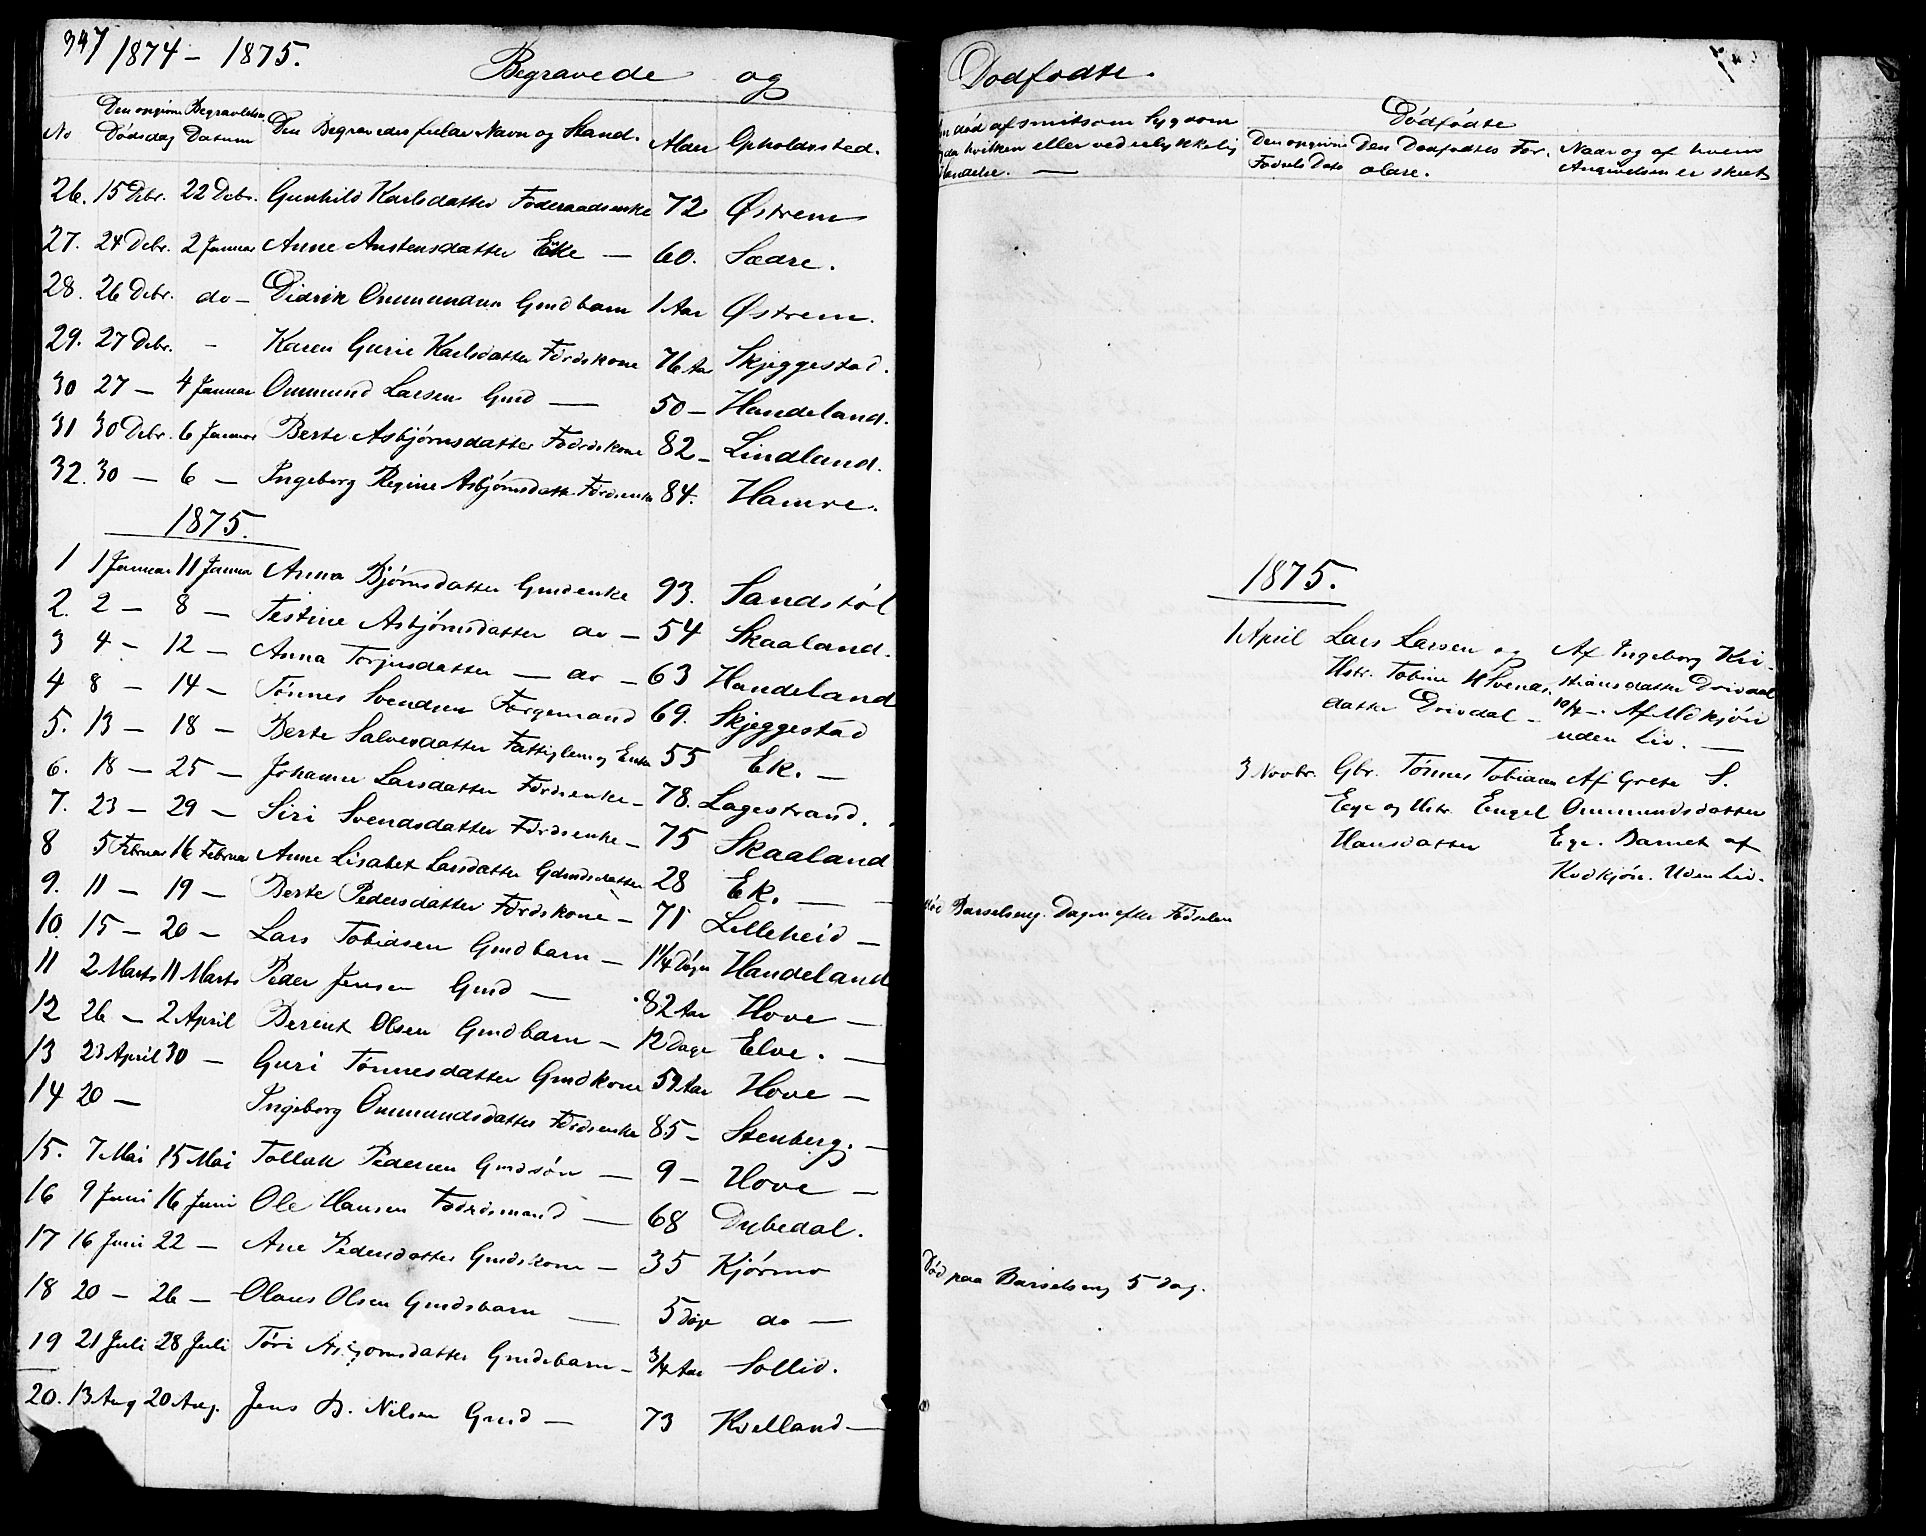 347 1874 – 1875.
Begravede og
No Den opgivne Dødsdag Begravelsens Datum Den Begravedes fulde Navn og Stand. Alder Opholdssted.
26. 15 Debr. 22 Debr. Gunhild Karlsdatter Føderaadsenke 72 Østrem
27. 24 Debr. 2 Januar Anne Austensdatter Enke — 60. Sædre.
28. 26 Debr. do — Didrik Ommundsen Gmdbarn 1 Aar Østrem.
29. 27 Debr. - Karen Gurie Karlsdatter Fdrdskone 76 Aar Skjeggestad.
30 27 — 4 Januar Ommund Larsen Gmd — 50 — Handeland.
31 30 Debr. 6 Januar Berte Asbjørnsdatter Fdrdskone 82 — Lindland.
32. 30 — 6 — Ingeborg Regine Asbjørnsdatt Fdrdsenke 84. Hamre.
1875.
1 1 Januar 11 Januar Anna Bjørnsdatter Gmdenke 93. Sandstøl
2. 2 — 8 — Testine Asbjørnsdatter do — 54 Skaaland.
3 4 — 12 — Anna Torjusdatter — do — 63 Handeland
4 8 — 14 — Tønnes Svendsen Færgemand 69. Skjeggestad
5. 13 — 18 — Berte Salvesdatter Fattiglem og Enke 55 Ek. —
6. 18 — 25 — Johanne Larsdatter Fdrdsenke — 78. Lagestrand.
7. 23 — 29 — Siri Svendsdatter Fdrdsenke — 75 Skaaland
8 5 Februar 16 Februar Anne Lisabet Larsdatter Gdmdsdatter 28 Ek. —
9. 11 — 19 — Berte Pedersdatter Fdrdskone — 71 Lilleheid —
10. 15 — 20 — Lars Tobiasen Gmdbarn — 1 1/4 Døgn Handeland
11 2 Marts 11 Marts Peder Jensen Gmd — 82 Aar Hove —
12 26 — 2 April Berent Olsen Gmdbarn — 12 Dage Elve. —
13 23 April 30 — Guri Tønnesdatter Gmdkone 59 Aar Hove —
14 20 — Ingeborg Ommundsdatter Fdrdsenke 85 — Stenberg. —
15. 7 Mai 15 Mai Tollak Pedersen Gmdsøn — 9 — Hove —
16 9 Juni 16 Juni Ole Hansen Fdrdsmand — 68 Dybedal.
17 16 Juni 22 — Ane Pedersdatter Gmdskone — 35 Kjørmo
18 20 — 26 — Olaus Olsen Gmdsbarn — 5 Dage do —
19 21 Juli 28 Juli Tóri Asbjørnsdatter Gmdsbarn — 3/4 Aar Sollid.
20. 13 Aug 20 Aug. Jens B. Nilsen Gmd — 73 Kvelland —
Dødfødte.
død af smitsom Sygdom
hvilken eller ved ulykkelig
Hændelse. —
Dødfødte
Den opgivne Fødsels Dato Den Dødfødtes Forældre. Naar og af hvem Angivelsen er skeet
1875.
1 April Lars Larsen og Af Ingeborg Kri-
Hstr. Tobine H Svends- stiansdatter Drivdal
datter Drivdal — 10/4 —. Af Mdkjøn
uden Liv. —
3 Novbr. Gbr. Tønnes Tobiasen Af Grete S.
Ege og Hstr. Engel Ommundsdatter
Hansdatter Ege. Barnet af
Kvdkjøn. Uden Liv.
død Barselseng. Dagen efter Fødselen
Død paa Barselseng 5 Dag.